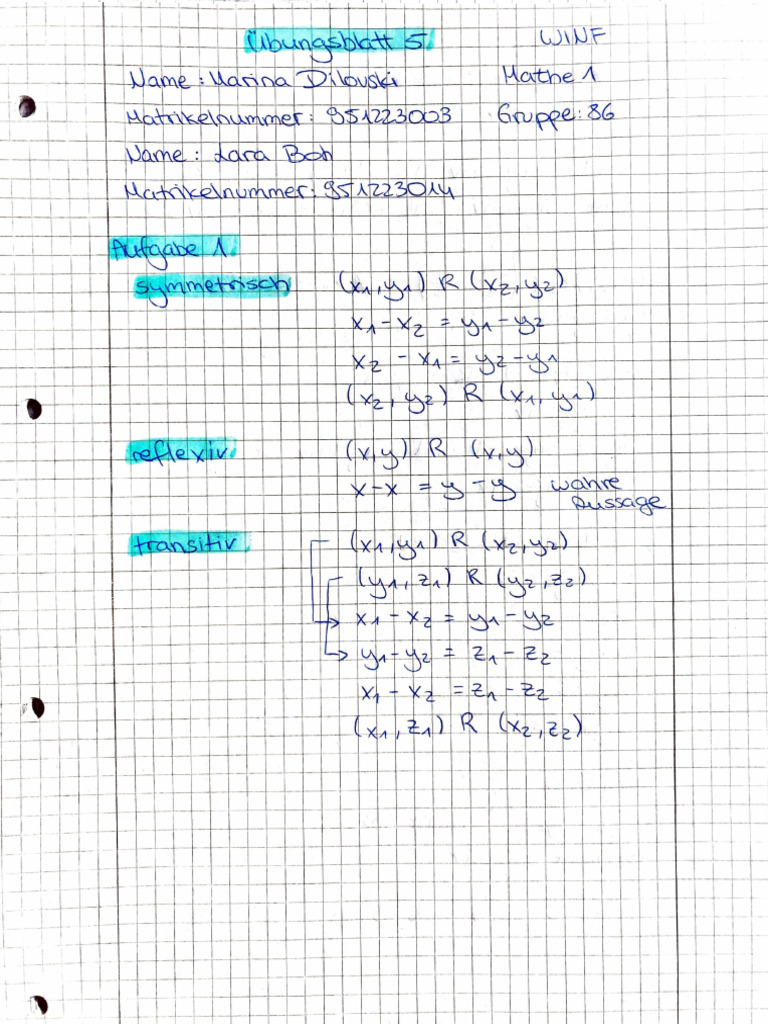 Übungsblatt 5 WINF
Name: Marina Dilovski Mathe 1
Matrikelnummer: 951223003 Gruppe: 86
Name: Lara Boh
Matrikelnummer: 951223014
Aufgabe 1
symmetrisch (x₁,y₁) R (x₂,y₂)
x₁-x₂ = y₁-y₂
x₂ - x₁ = y₂-y₁
(x₂, y₂) R (x₁, y₁)
reflexiv (x,y) R (x,y)
x-x = y-y wahre
Aussage
transitiv (x₁,y₁) R (x₂,y₂)
(y₁, z₁) R (y₂, z₂)
x₁-x₂ = y₁-y₂
y₁-y₂ = z₁-z₂
x₁-x₂ = z₁-z₂
(x₁, z₁) R (x₂, z₂)